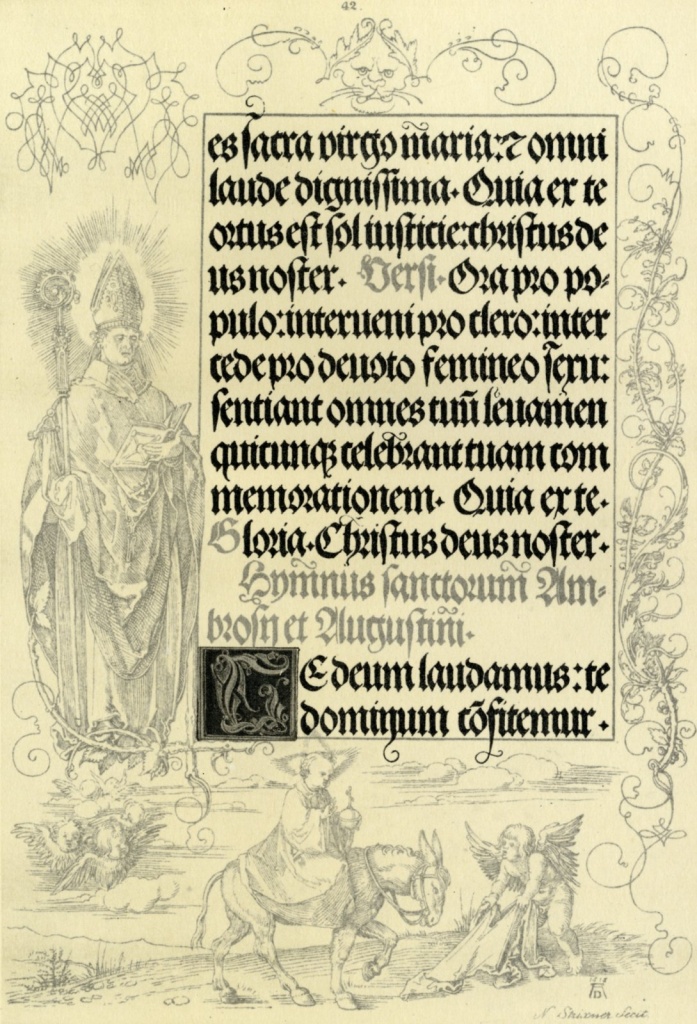 42.
es sacra virgo m̄aria: ⁊ omni
laude dignissima. Quia ex te
ortus est sol iusticie: christus de
us noster. Versi. Ora pro po⸗
pulo: interueni pro clero: inter
cede pro deuoto femineo sexu:
sentiant omnes tuū leuamen
quicunqꝫ celebrant tuam com
memorationem. Quia ex te.
Gloria. Christus deus noster.
Hym̄nus sanctorum̄ Am⸗
brosij et Augustin̄i.
TE deum laudamus: te
dominum cōfitemur.
AD
N. Strixner fecit.